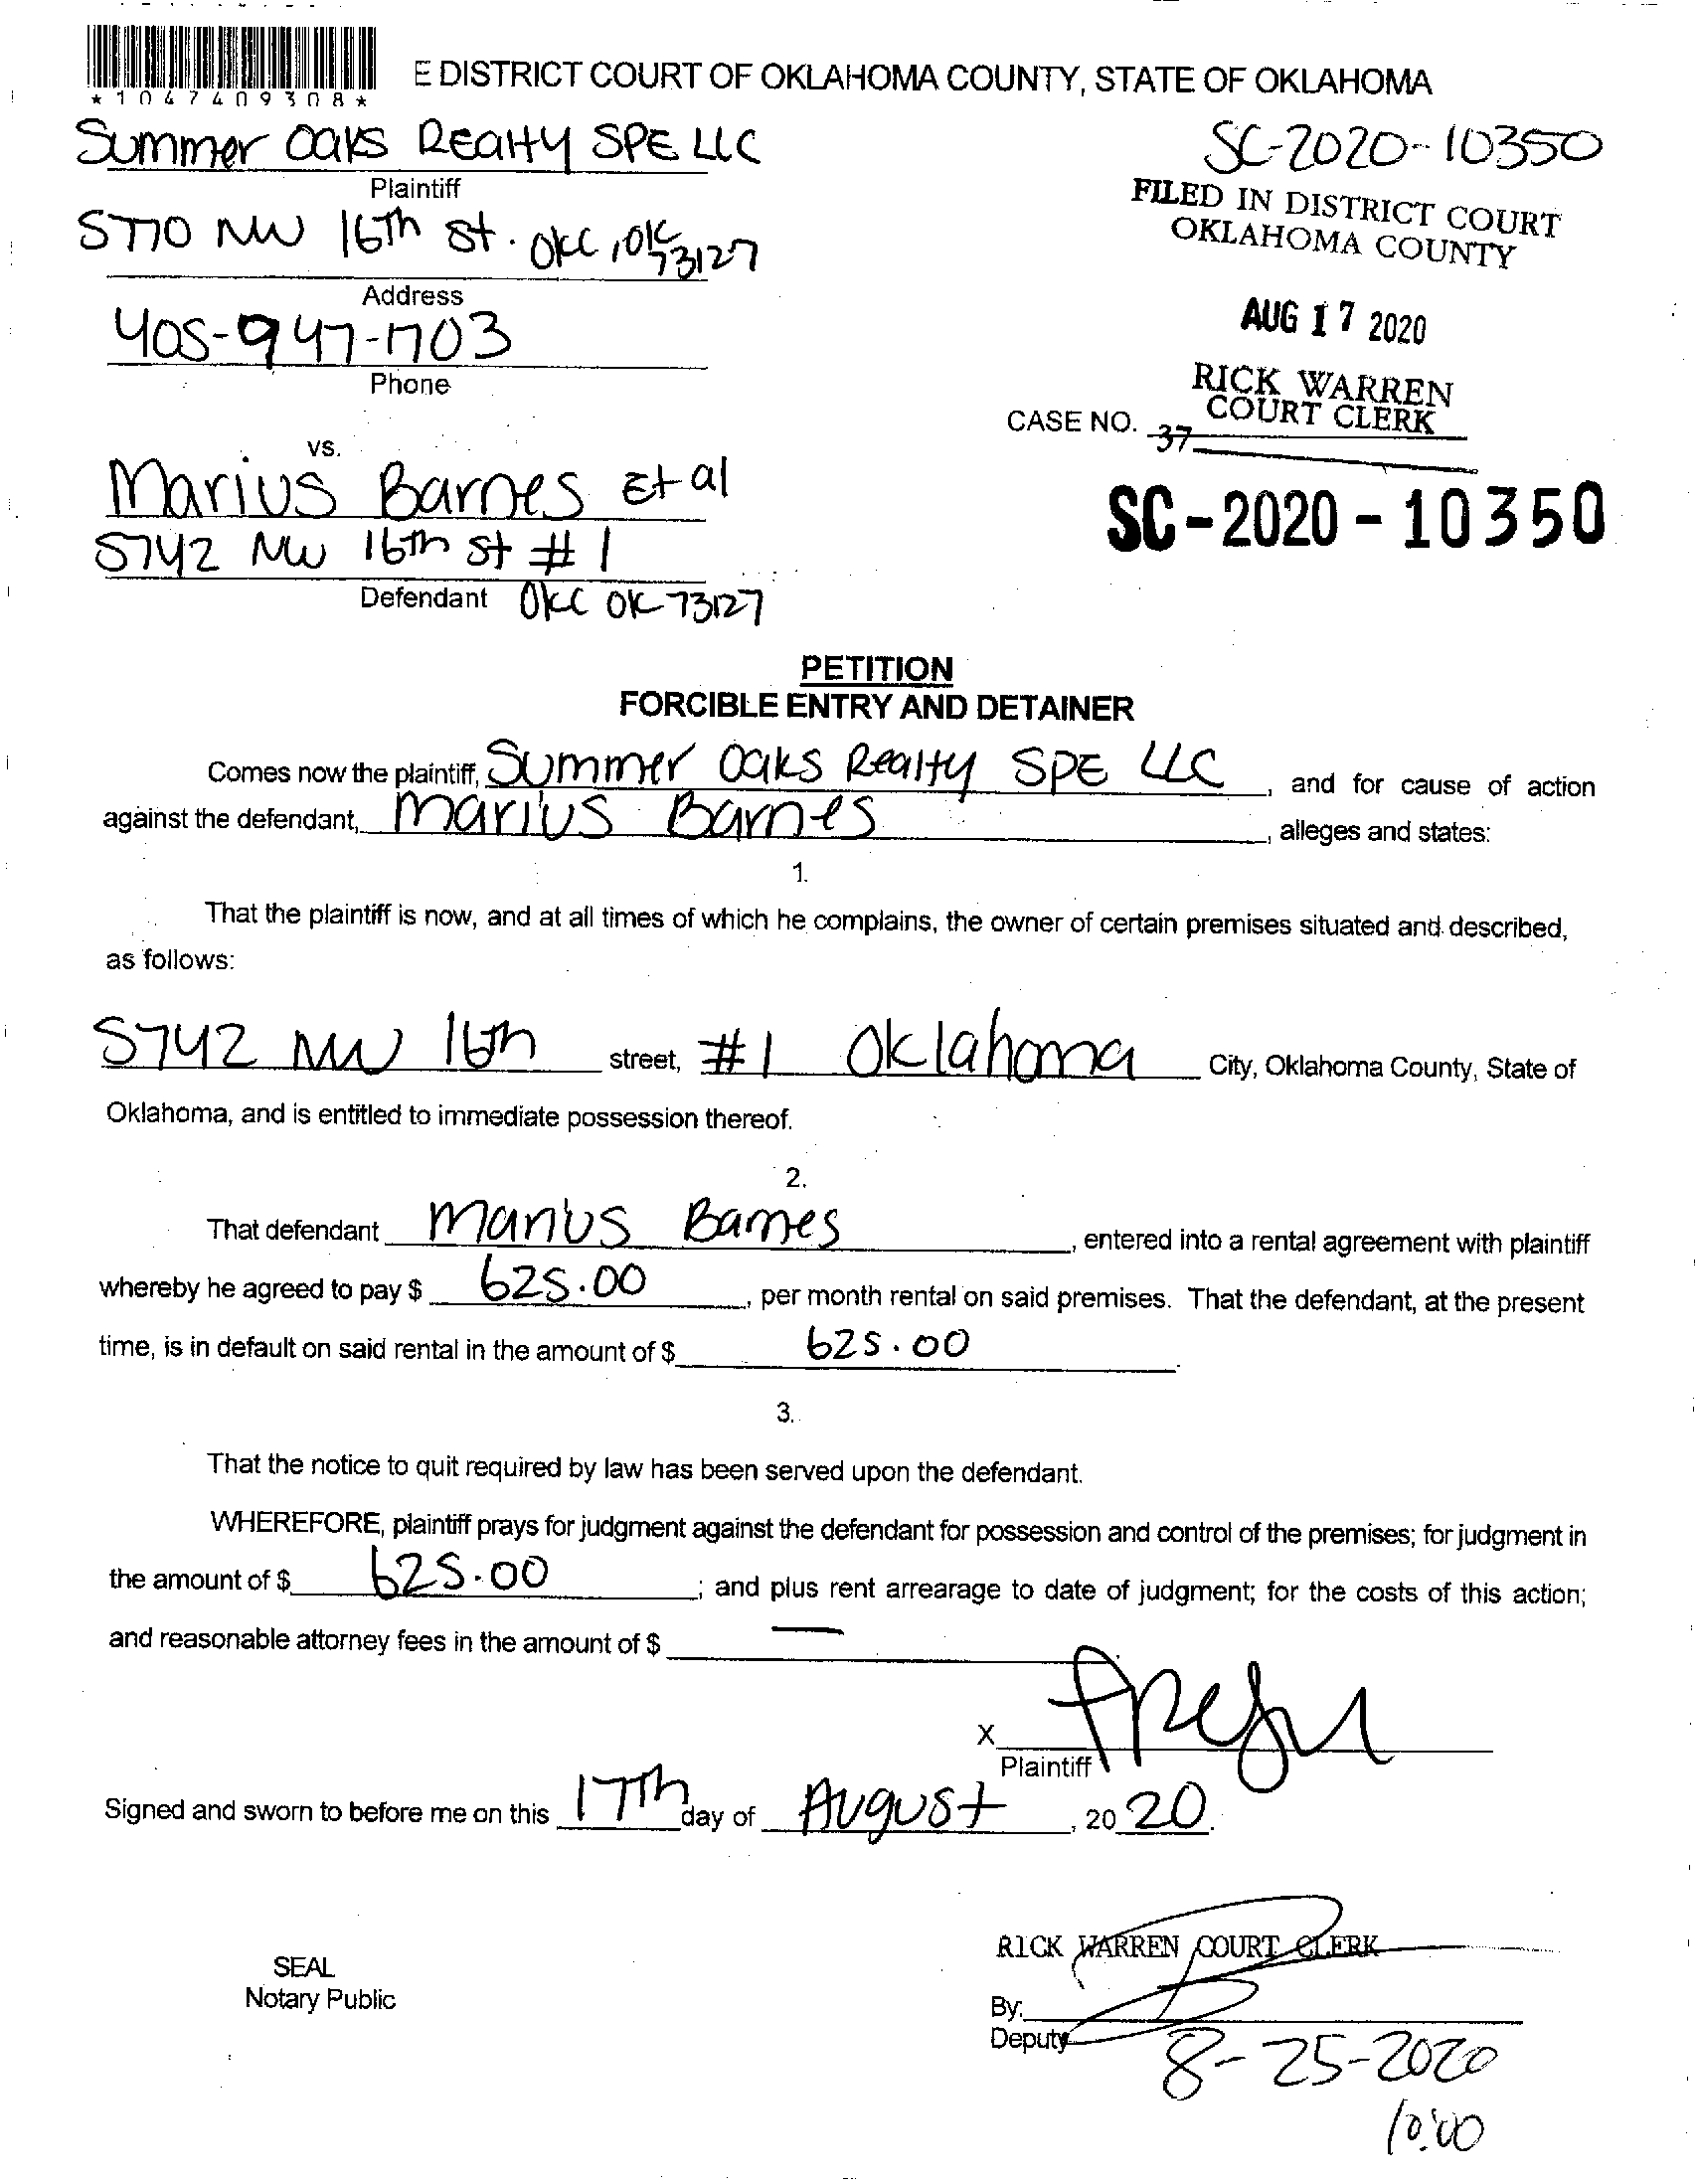 *1047409308*
E DISTRICT COURT OF OKLAHOMA COUNTY, STATE OF OKLAHOMA
Summer Oaks Realty SPE LLC
SC-2020-10350
Plaintiff
FILED IN DISTRICT COURT
OKLAHOMA COUNTY
5770 NW 16th St. OKC, OK 73127
Address
AUG 17 2020
405-947-1703
Phone
RICK WARREN
COURT CLERK
CASE NO.
37
vs.
Marius Barnes Et al
SC-2020-10350
5742 NW 16th St #1
Defendant OKC OK 73127
PETITION
FORCIBLE ENTRY AND DETAINER
Comes now the plaintiff, Summer Oaks Realty SPE LLC, and for cause of action
against the defendant, Marius Barnes, alleges and states:
1.
That the plaintiff is now, and at all times of which he complains, the owner of certain premises situated and described,
as follows:
5742 NW 16th street, #1 Oklahoma City, Oklahoma County, State of
Oklahoma, and is entitled to immediate possession thereof.
2.
That defendant Marius Barnes, entered into a rental agreement with plaintiff
whereby he agreed to pay $ 625.00, per month rental on said premises. That the defendant, at the present
time, is in default on said rental in the amount of $ 625.00.
3.
That the notice to quit required by law has been served upon the defendant.
WHEREFORE, plaintiff prays for judgment against the defendant for possession and control of the premises; for judgment in
the amount of $ 625.00; and plus rent arrearage to date of judgment; for the costs of this action;
and reasonable attorney fees in the amount of $ —
X
Plaintiff
Signed and sworn to before me on this 17th day of August, 2020.
RICK WARREN COURT CLERK
SEAL
Notary Public
By:
Deputy
8-25-2020
10:00